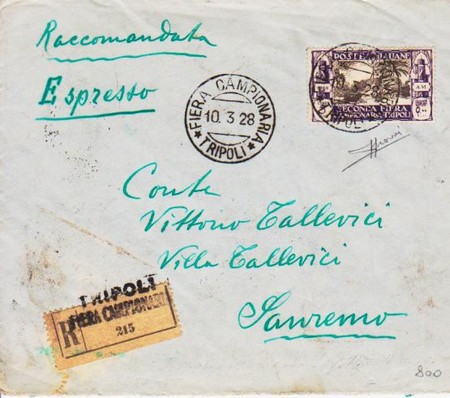 Raccomandata
Espresso
FIERA CAMPIONARIA
10.3.28
TRIPOLI
POSTE ITALIANE
SECONDA FIERA
CAMPIONARIA TRIPOLI
Conte
Vittorio Tallevici
Villa Tallevici
Sanremo
TRIPOLI
FIERA CAMPIONARIA
R
215
800